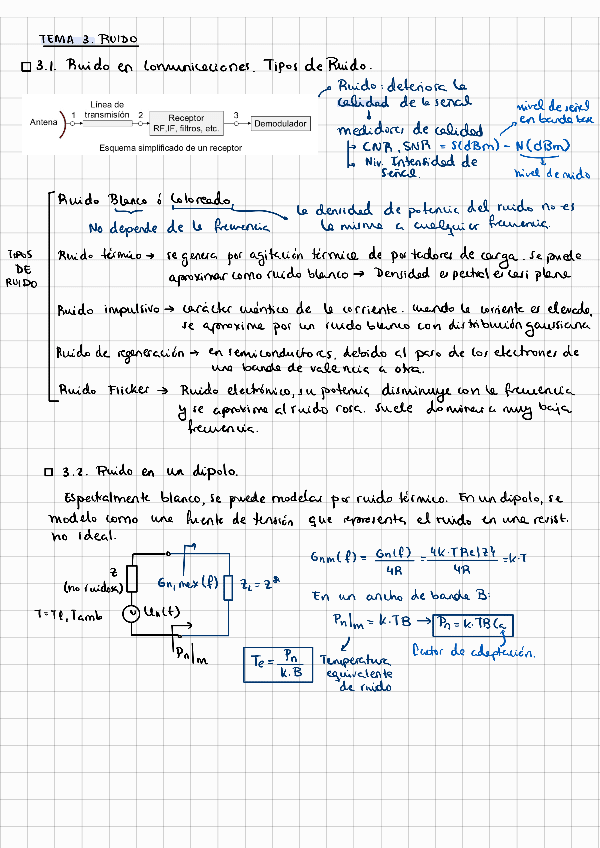 TEMA 3. RUIDO
3.1. Ruido en Comunicaciones. Tipos de Ruido.
Ruido: deteriora la
calidad de la señal
medidores de calidad
CNR, SNR = S(dBm) - N(dBm)
Niv. Intensidad de
señal.
nivel de señal
en banda base
nivel de ruido
Línea de
transmisión
Antena
1
2
3
Receptor
RF,IF, filtros, etc.
Demodulador
Esquema simplificado de un receptor
TIPOS
DE
RUIDO
Ruido Blanco ó Coloreado.
No depende de la frecuencia
la densidad de potencia del ruido no es
la misma a cualquier frecuencia.
Ruido térmico → se genera por agitación térmica de portadores de carga. Se puede
aproximar como ruido blanco → Densidad espectral es casi plana
Ruido impulsivo → carácter cuántico de la corriente. cuando la corriente es elevada,
se aproxima por un ruido blanco con distribución gaussiana
Ruido de regeneración → en semiconductores, debido al paso de los electrones de
una banda de valencia a otra.
Ruido Flicker → Ruido electrónico, su potencia disminuye con la frecuencia
y se aproxima al ruido rosa. Suele dominar a muy baja
frecuencia.
3.2. Ruido en un dipolo.
Espectralmente blanco, se puede modelar por ruido térmico. En un dipolo, se
modela como una fuente de tensión que representa el ruido en una resist.
no ideal.
Z
(no ruidosa)
T = Tf, Tamb
Un(f)
Gn,max(f)
ZL = Z*
Pn|m
Gnm(f) = Gn(f)/4R = 4K·T Re|Z|/4R = K·T
En un ancho de banda B:
Pn|m = K·TB → Pn = K·TB Ca
Factor de adaptación.
Te = Pn/k·B
Temperatura
equivalente
de ruido